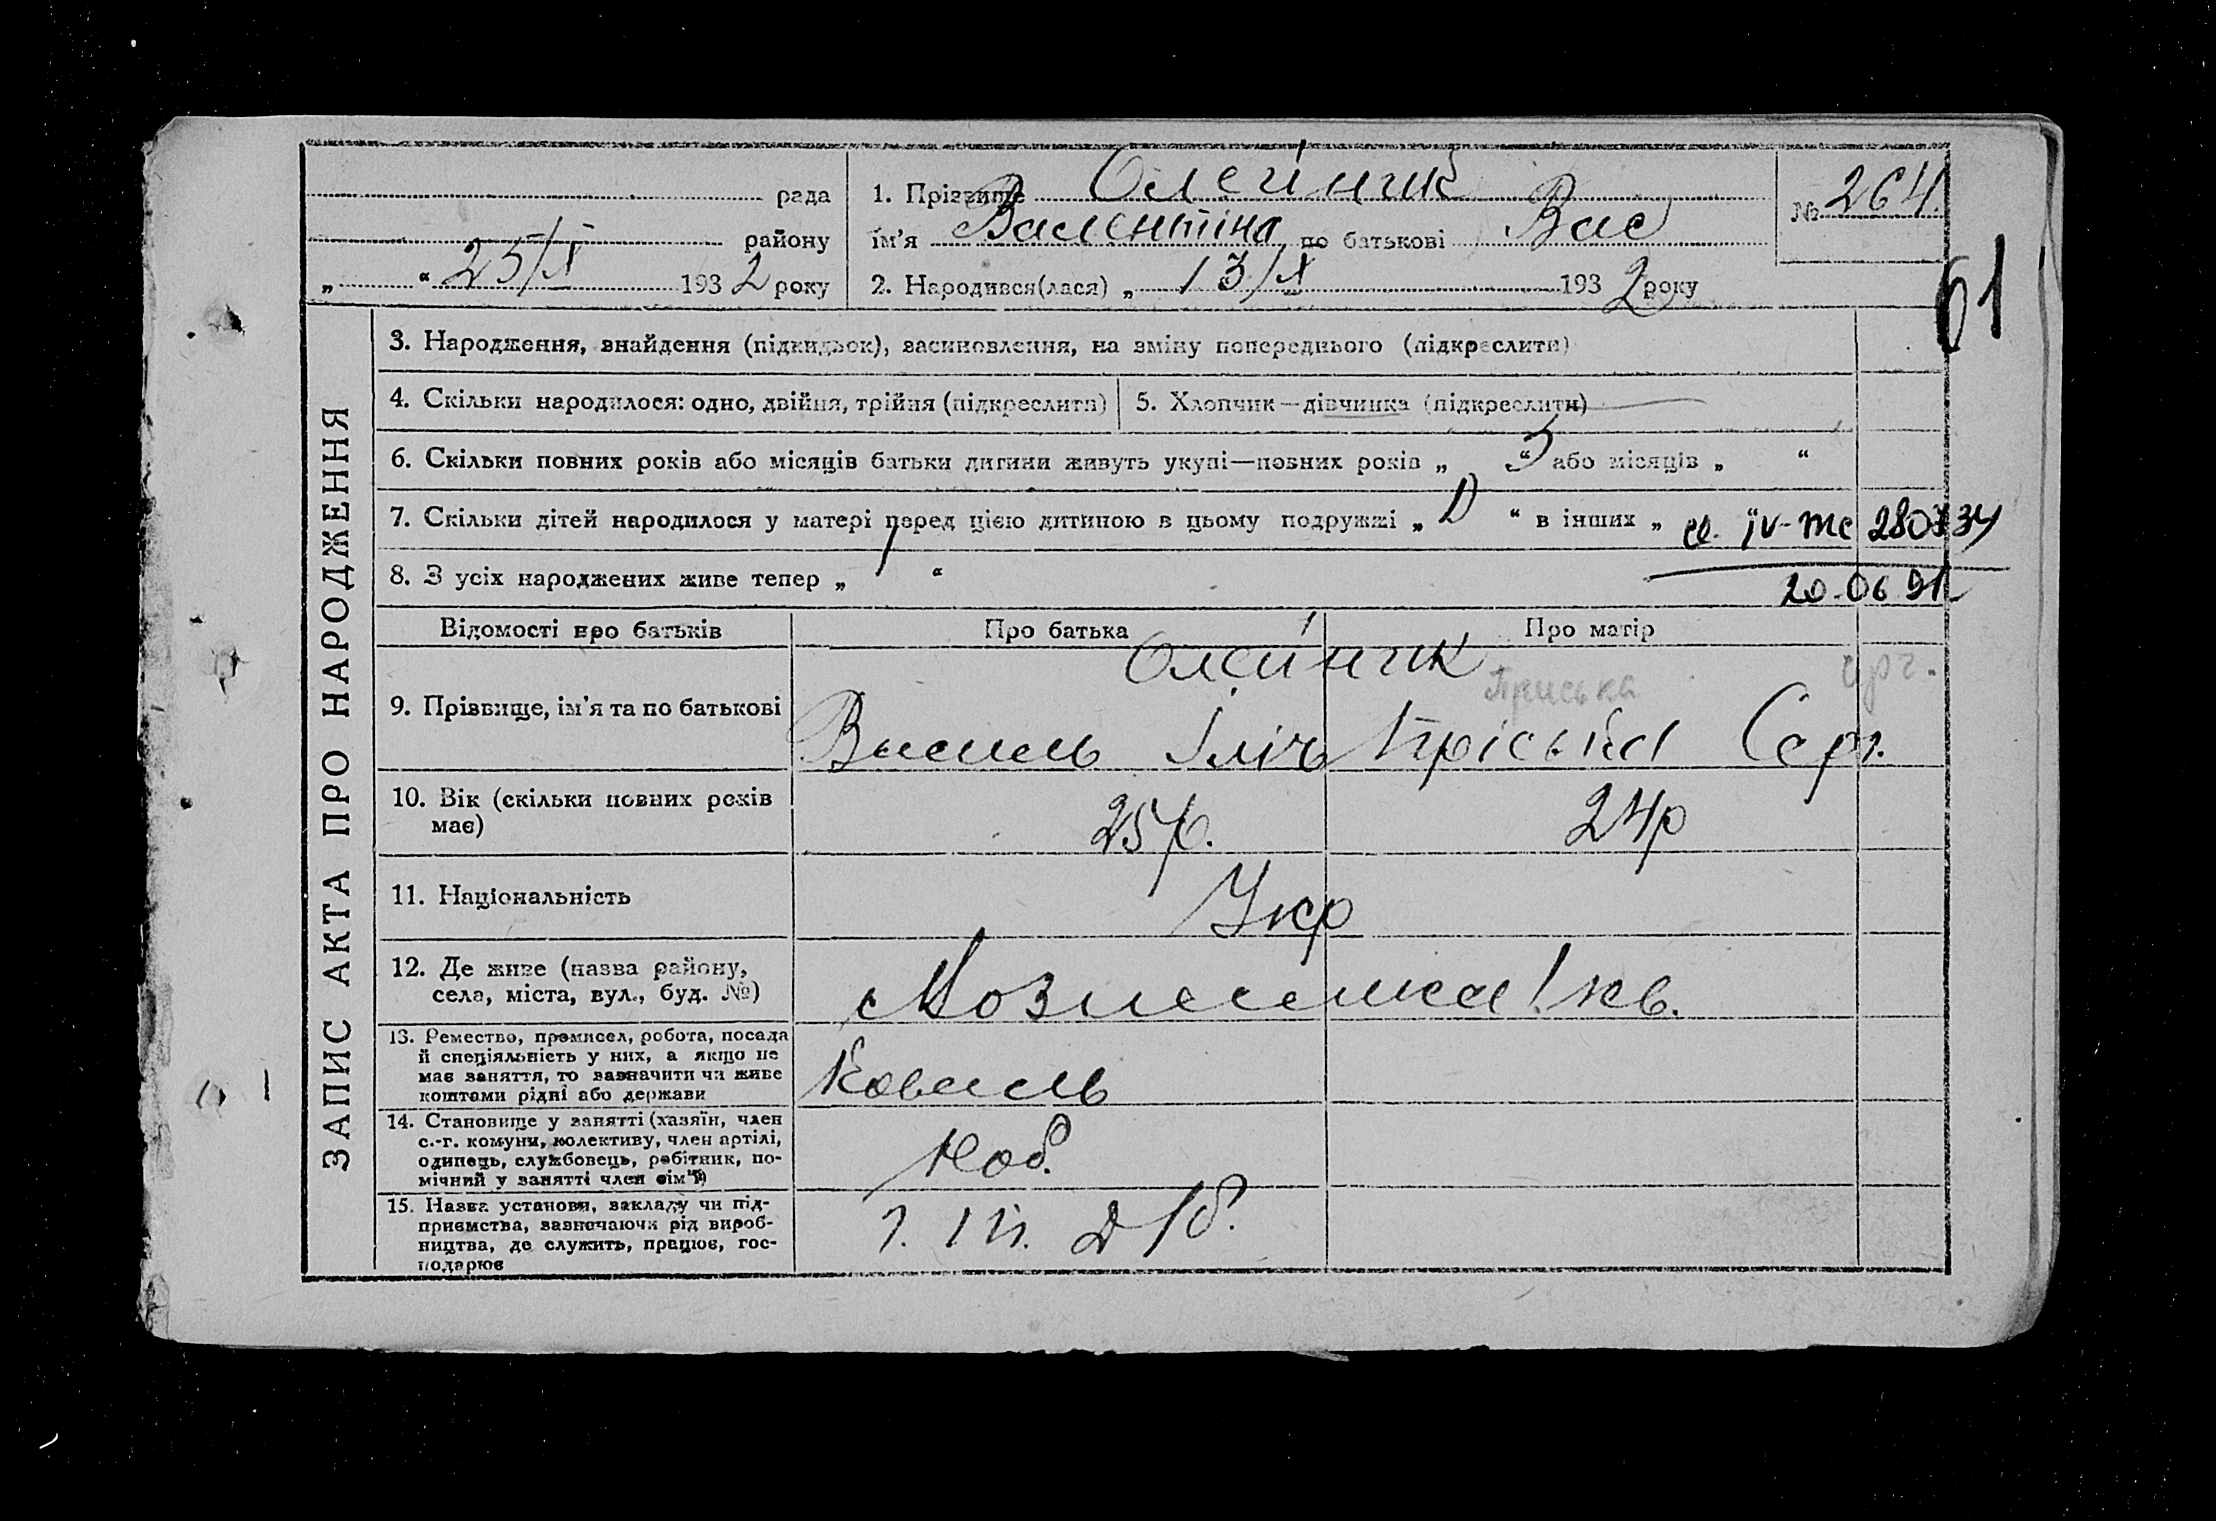 рада
району
„ “ 25/X 1932 року
1. Прізвище Олейник
ім’я Валентіна по батькові Вас
2. Народився(лася) „ 13/X 1932 року
№ 264.
61
ЗАПИС АКТА ПРО НАРОДЖЕННЯ
3. Народження, знайдення (підкидьок), засиновлення, на зміну попереднього (підкреслити)
4. Скільки народилося: одно, двійня, трійня (підкреслити)
5. Хлопчик—дівчинка (підкреслити)
6. Скільки повних років або місяців батьки дитини живуть укупі—повних років „ 5 “ або місяців „ “
7. Скільки дітей народилося у матері перед цією дитиною в цьому подружжі „ “ в інших „
ІV-ТС
20.06.91
8. З усіх народжених живе тепер „ 1 “
Відомості про батьків
Про батька
Про матір
9. Прізвище, ім’я та по батькові
Олейник
Приська
Василь Іліч
Пріська Серг.
10. Вік (скільки повних років
має)
25р.
24р
11. Національність
Укр
12. Де живе (назва району,
села, міста, вул., буд. №)
кв.
13. Ремество, промисел, робота, посада
й спеціяльність у них, а якщо не
має заняття, то зазначити чи живе
коштами рідні або держави
Коваль
14. Становище у занятті (хазяїн, член
с.-г. комуни, колективу, член артілі,
одинець, службовець, робітник, по-
мічний у занятті член сім'ї)
Роб.
15. Назва установи, закладу чи під-
приємства, зазначаючи рід вироб-
ництва, де служить, працює, гос-
подарює